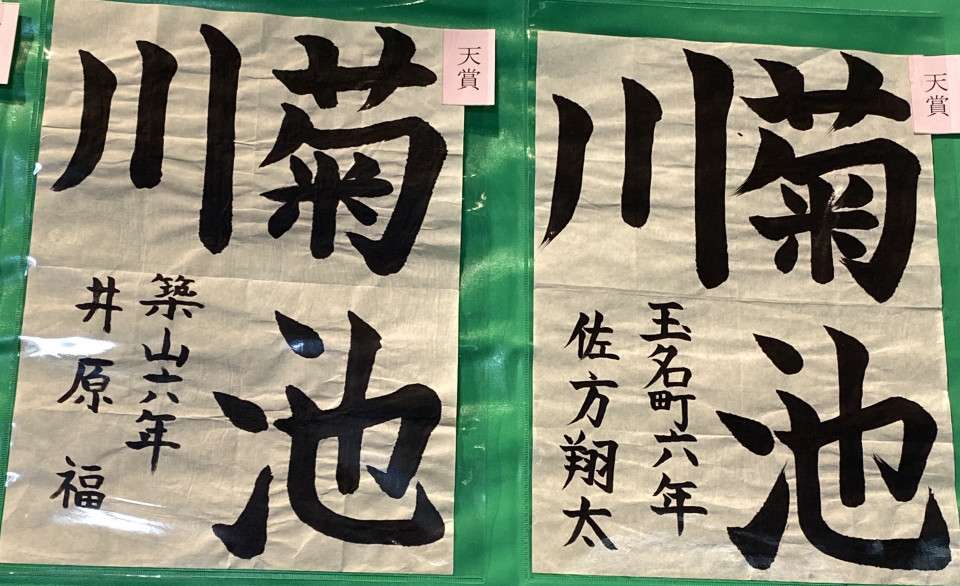 天賞
菊池
川
玉名町六年
佐方翔太
天賞
菊池
川
築山六年
井原福